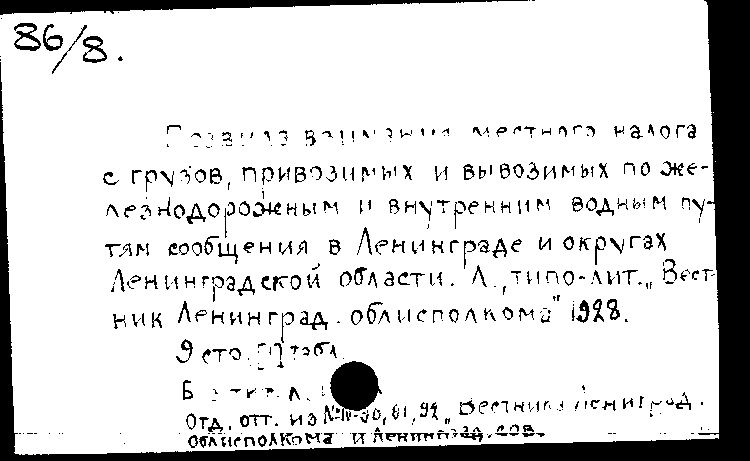 86/8.
Правила взимания местного налога
с грузов, привозимых и вывозимых по же-
лезнодорожным и внутренним водным пу-
тям сообщения в Ленинграде и округах
Ленинградской области. Л., типо-лит. „Вест-
ник Ленинград. облисполкома" 1928.
9 стр. табл.
Отд. отт. из „Вестника Ленинград.
облисполкома и Ленинград. сов.